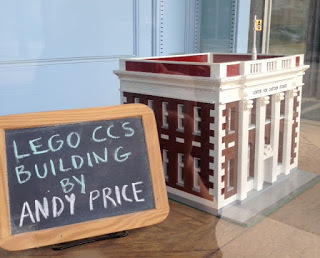 LEGO CCS
BUILDING
BY
ANDY PRICE
CENTER FOR CARTOON STUDIES